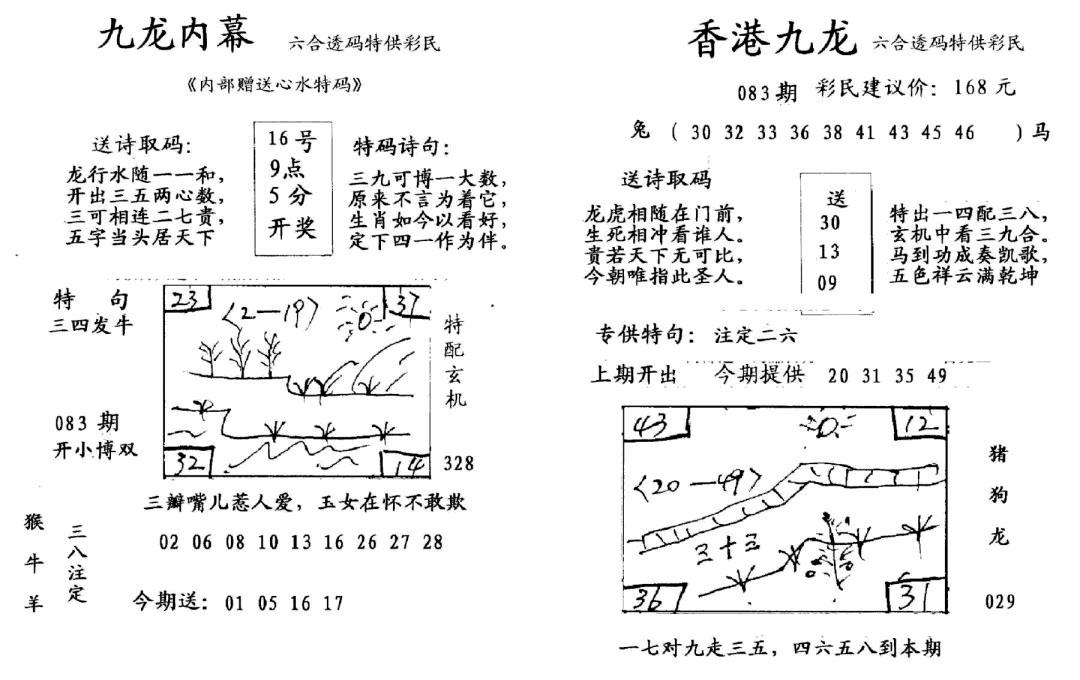 九龙内幕 六合透码特供彩民
《内部赠送心水特码》
送诗取码:
龙行水随一一和,
开出三五两心数,
三可相连二七貴,
五字当头居天下
16号
9点
5分
开奖
特码诗句:
三九可博一大数,
原来不言为着它,
生肖如今以看好,
定下四一作为伴。
特句
三四发牛
083期
开小博双
23
37
〈2—19〉
32
14
特配玄机
328
三瓣嘴儿惹人爱, 玉女在怀不敢欺
猴牛羊
三八注定
02 06 08 10 13 16 26 27 28
今期送: 01 05 16 17
香港九龙 六合透码特供彩民
083期 彩民建议价: 168元
兔 ( 30 32 33 36 38 41 43 45 46 ) 马
送诗取码
龙虎相随在门前,
生死相冲看谁人。
貴若天下无可比,
今朝唯指此圣人。
送
30
13
09
特出一四配三八,
玄机中看三九合。
马到功成奏凯歌,
五色祥云满乾坤
专供特句: 注定二六
上期开出 今期提供 20 31 35 49
43
12
〈20—49〉
三十三
36
31
猪狗龙
029
一七对九走三五, 四六五八到本期